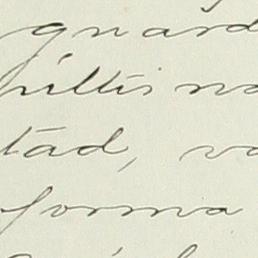 gnård
hittis no
tåd, va
forma